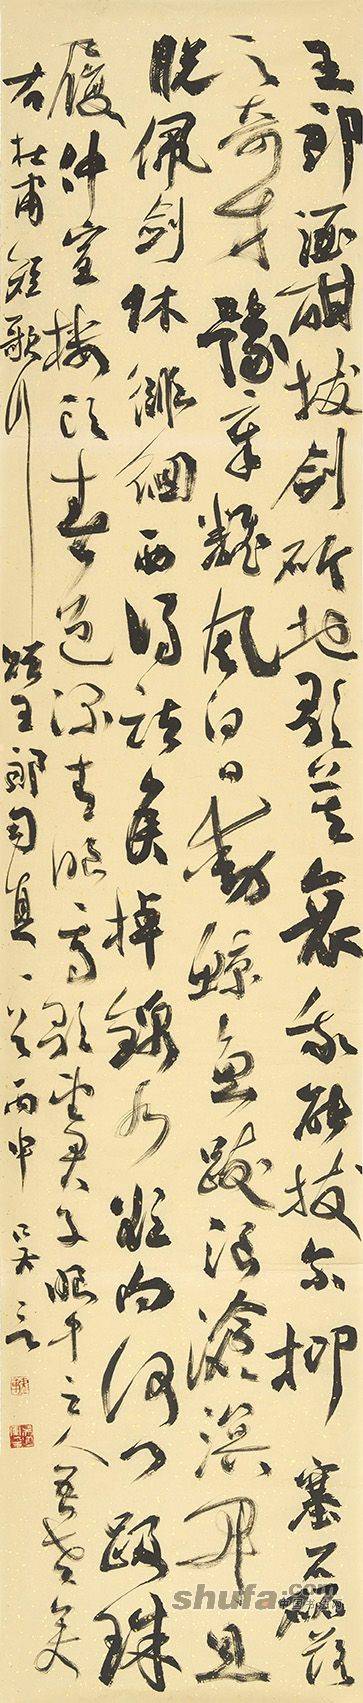 王郎酒酣拔剑斫地歌莫哀我能拔尔抑塞磊落
之奇才豫章翻風白日動鯨魚跋浪滄溟開且
脱佩剑休徘徊西得諸侯棹錦水欲向何門趿珠
履仲宣楼頭春色深青眼高歌望君子眼中之人吾老矣
右杜甫短歌行 贈王郎司直一首丙申
shufa.com
中国书法网